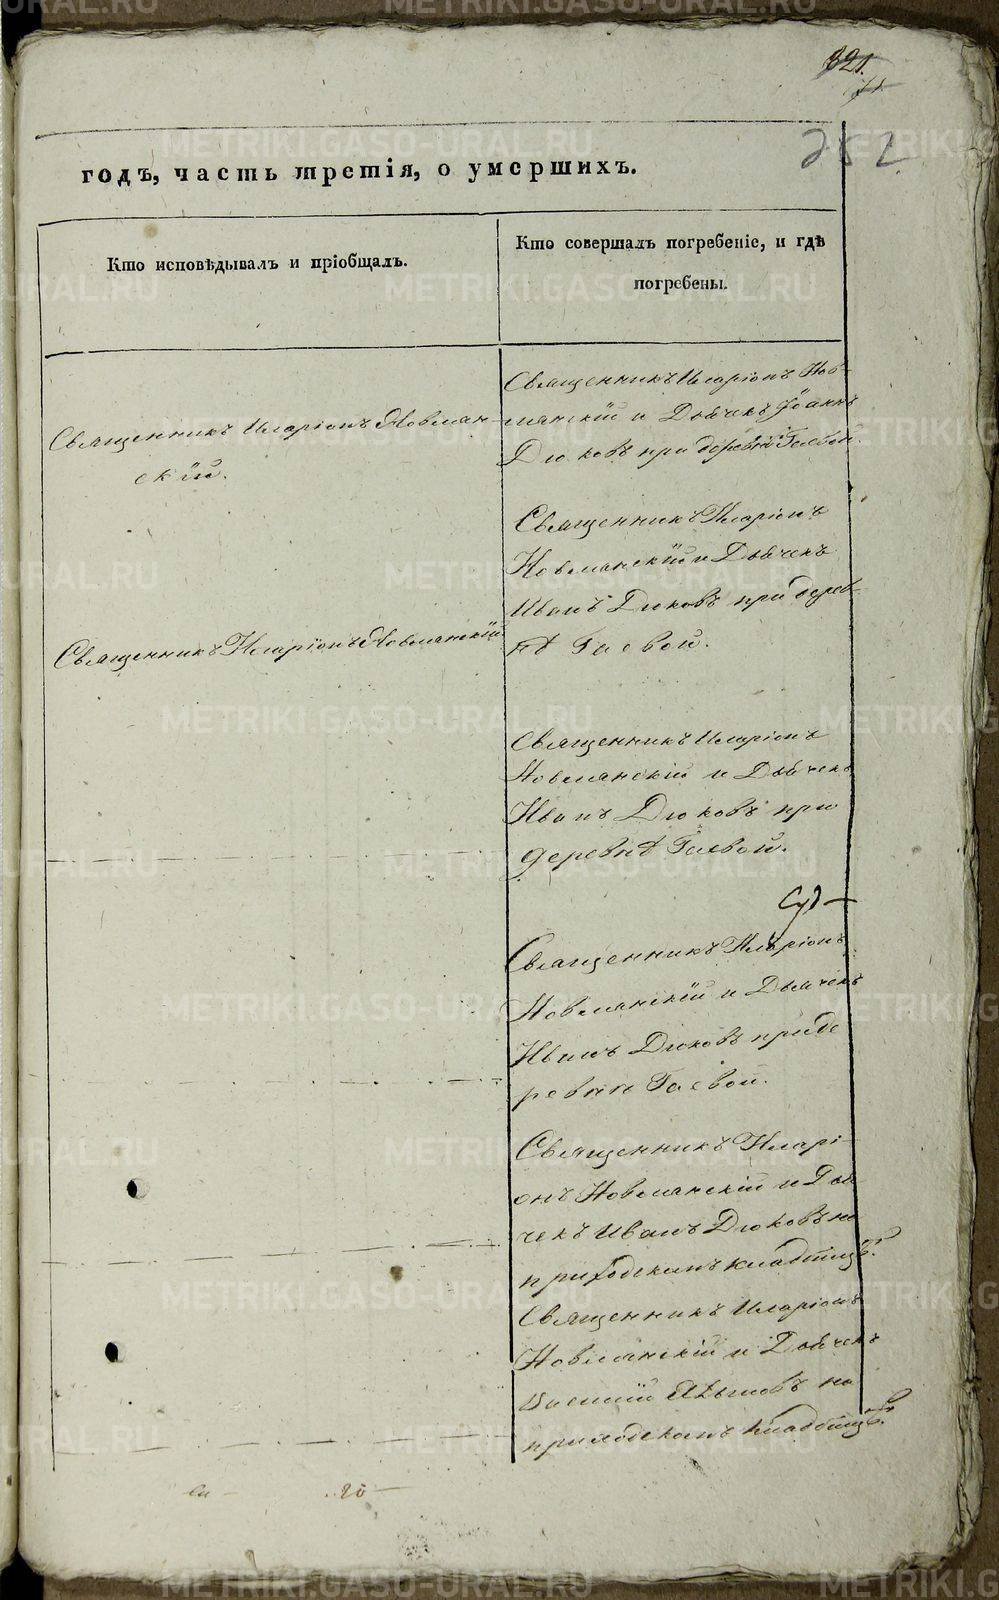 321.
71.
252
годъ, часть третія, о умершихъ.
Кто исповѣдывалъ и пріобщалъ.
Кто совершалъ погребеніе, и гдѣ
погребены.
Священникъ Иларіонъ Новлян-
скій.
Священникъ Иларіонъ Нов-
лянскій и Дьячекъ Іоаннъ
Дюковъ при деревнѣ Гаевой.
Священникъ Иларіонъ Новлянскій
Священникъ Иларіонъ
Новлянскій и Дьячекъ
Иванъ Дюковъ при дерев-
нѣ Гаевой.
Священникъ Иларіонъ
Новлянскій и Дьячекъ
Иванъ Дюковъ при
деревнѣ Гаевой.
Священникъ Иларіонъ
Новлянскій и Дьячекъ
Иванъ Дюковъ при де
ревни Гаевой.
Священникъ Иларі-
онъ Новлянскій и Дья
чекъ Иванъ Дюковъ на
приходскомъ кладбищѣ.
Священникъ Иларіонъ
Новлянскій и Дьячекъ
Василій на
приходскомъ кладбищѣ.
20
METRIKI.GASO-URAL.RU